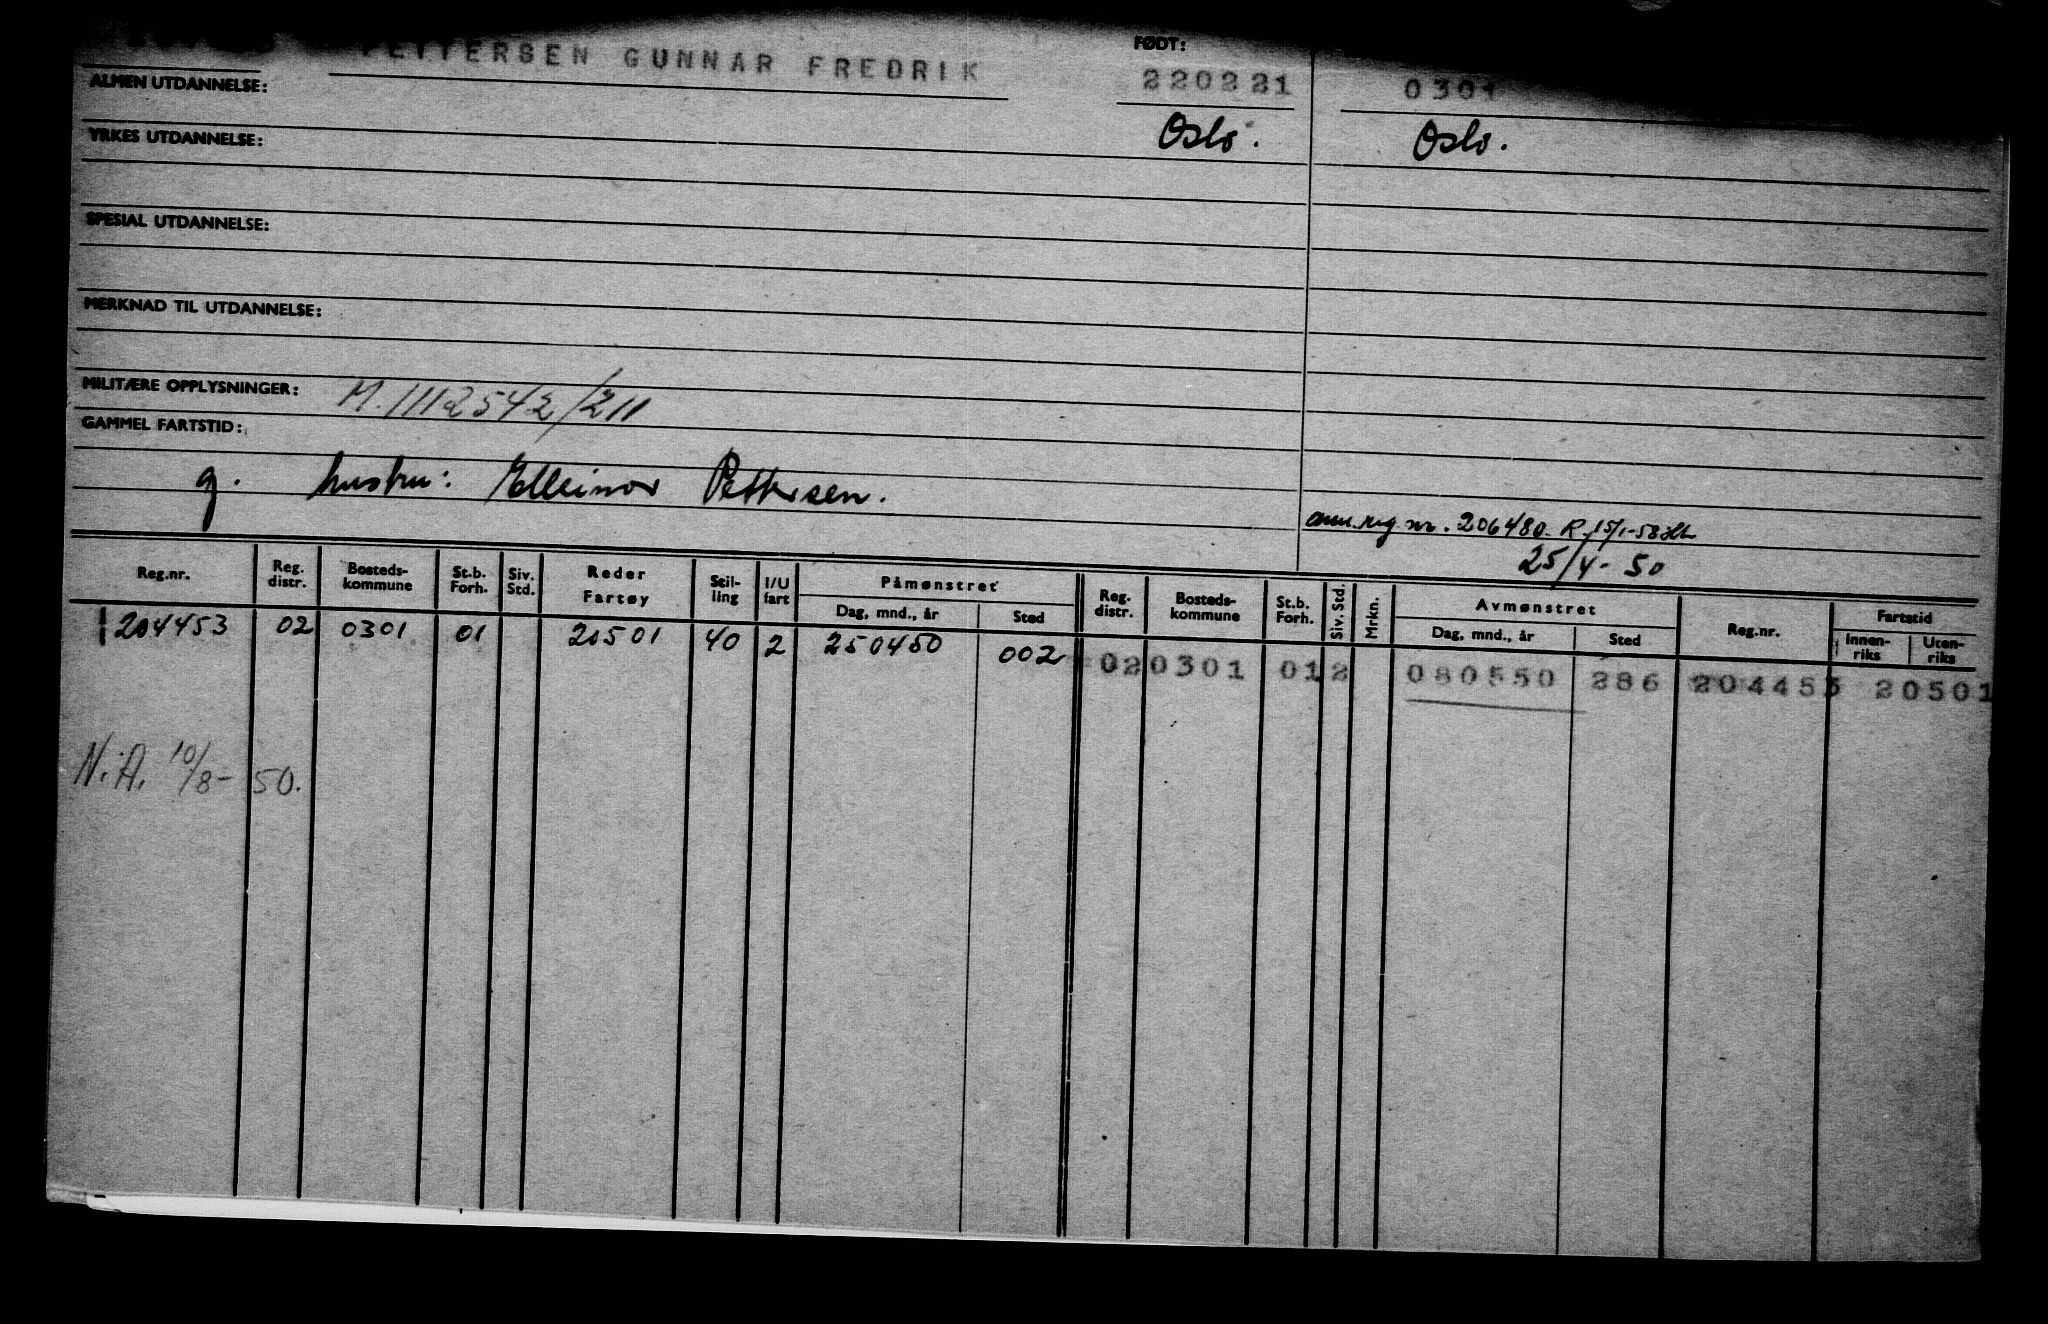 PETTERSEN GUNNAR FREDRIK
FØDT:
220221
0301
ALMEN UTDANNELSE:
Oslo.
Oslo.
YRKES UTDANNELSE:
SPESIAL UTDANNELSE:
MERKNAD TIL UTDANNELSE:
MILITÆRE OPPLYSNINGER: M.1112542/211
GAMMEL FARTSTID:
g. hustru: Elleinor Pettersen.
ann. reg nr. 206480. R. 15/1-58
25/4-50
Reg.nr. Reg. distr. Bosteds-kommune St.b. Forh. Siv. Std. Reder Fartøy Stil-ling I/U fart Påmønstret Dag, mnd., år Sted Reg. distr. Bosteds-kommune St.b. Forh. Siv. Std. Mrkn. Avmønstret Dag, mnd., år Sted Reg.nr. Fartstid Innen-riks Uten-riks
204453 02 0301 01 20501 40 2 250450 002 02 0301 01 2 080550 286 204453 20501
N.A. 10/8-50.